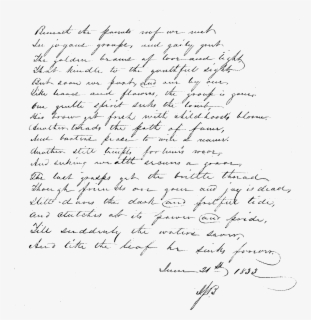 Beneath the parent's roof we met
In joyous groups, and gaily yet
The golden beams of love and light
That kindle to the youthful sight
But soon we part, and one by one,
Like leaves and flowers, the group is gone.
One gentle spirit seeks the tomb,
His brow yet fresh with childhood's bloom.
Another treads the path of fame,
And barters peace to win a name.
Another still tempts for
And seeking wealth
The last grasps yet the brittle thread,
Though friends are gone and joy is dead,
Still dares the dark and fretful tide,
And clutches at its power and pride,
Till suddenly the waters
And like the leaf he sinks forever
June 21th, 1833
MJB